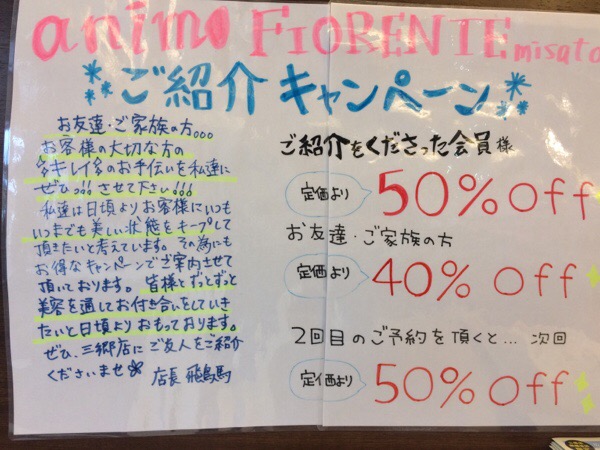 animo FIORENTE misato
ご紹介キャンペーン!
お友達・ご家族の方。。。
お客様の大切な方の
キレイのお手伝いを私達に
ぜひっ!! させて下さい!!!
私達は日頃よりお客様にいつも
いつまでも美しい状態をキープして
頂きたいと考えています。その為にも
お得なキャンペーンでご案内させて
頂いております。皆様とずっとずっと
美容を通してお付き合いをしていき
たいと日頃よりおもっております。
ぜひ、三郷店にご友人をご紹介
くださいませ
店長 飛鳥馬
ご紹介をくださった会員様
定価より 50% Off
お友達・ご家族の方
定価より 40% Off
2回目のご予約を頂くと... 次回
定価より 50% Off